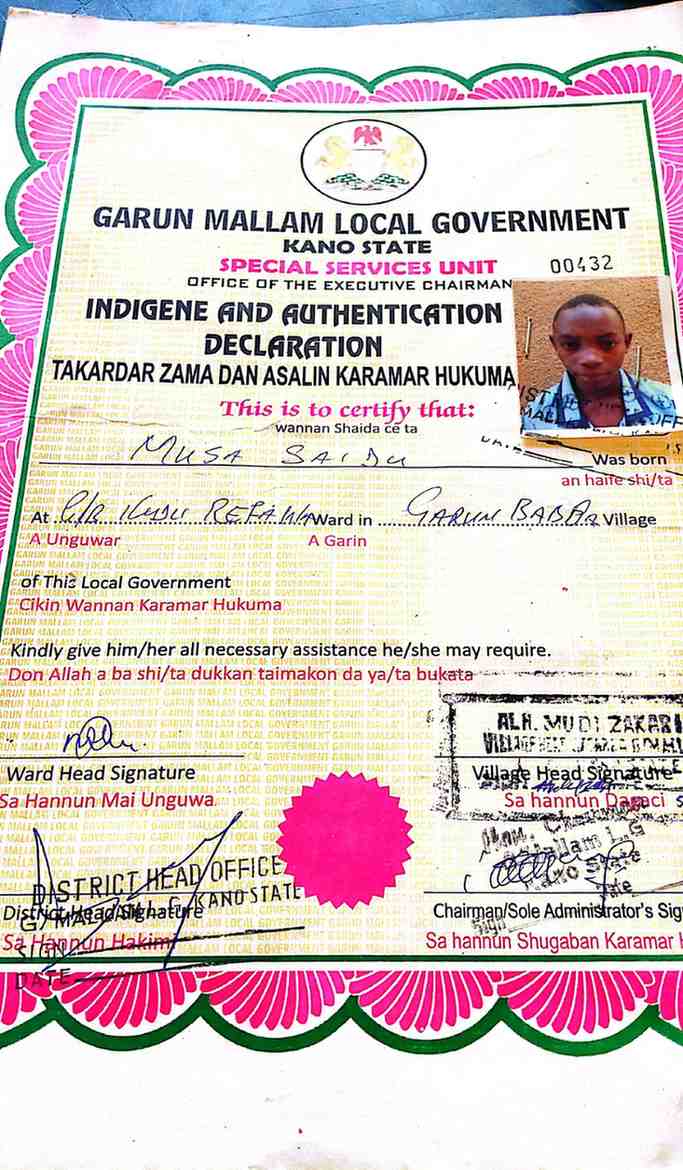 GARUN MALLAM LOCAL GOVERNMENT
KANO STATE
SPECIAL SERVICES UNIT 00432
OFFICE OF THE EXECUTIVE CHAIRMAN
INDIGENE AND AUTHENTICATION
DECLARATION
TAKARDAR ZAMA DAN ASALIN KARAMAR HUKUMA
This is to certify that:
wannan Shaida ce ta
MUSA SAIDU Was born
an haife shi/ta
At KUDU Ward in GARUN BABBA Village
A Unguwar A Garin
of This Local Government
Cikin Wannan Karamar Hukuma
Kindly give him/her all necessary assistance he/she may require.
Don Allah a ba shi/ta dukkan taimakon da ya/ta bukata
ALH. MUDI ZAKARI
Ward Head Signature Village Head Signature
Sa Hannun Mai Unguwa Sa hannun Dagaci
DISTRICT HEAD OFFICE
G/MALLAM L.G. KANO STATE
District Head Signature Chairman/Sole Administrator's Sig
Sa Hannun Hakimi Sa hannun Shugaban Karamar H
SIGN
DATE